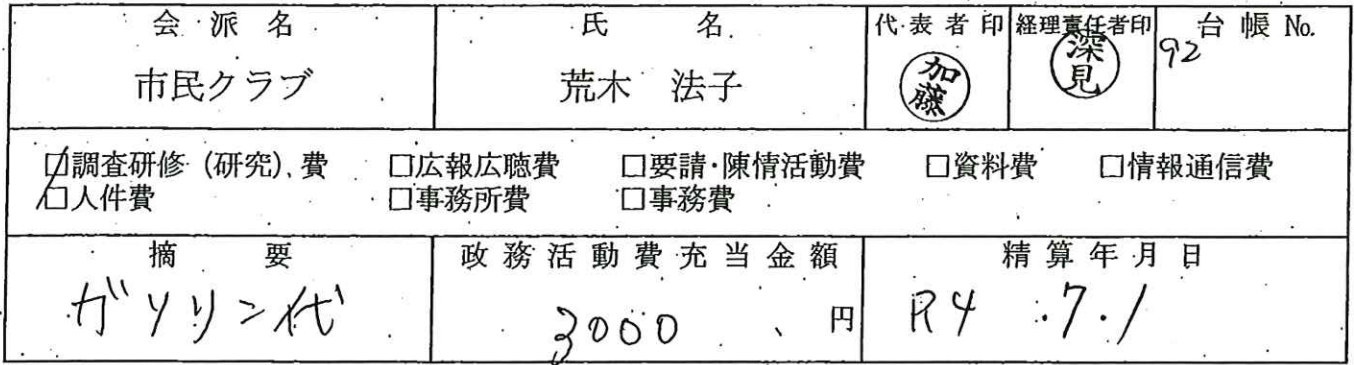 会派名 氏名 代表者印 経理責任者印 台帳No.
市民クラブ 荒木 法子 加藤 深見 92
☑調査研修(研究)費 □広報広聴費 □要請・陳情活動費 □資料費 □情報通信費
□人件費 □事務所費 □事務費
摘要 政務活動費充当金額 精算年月日
ガソリン代 3000 円 R4.7.1